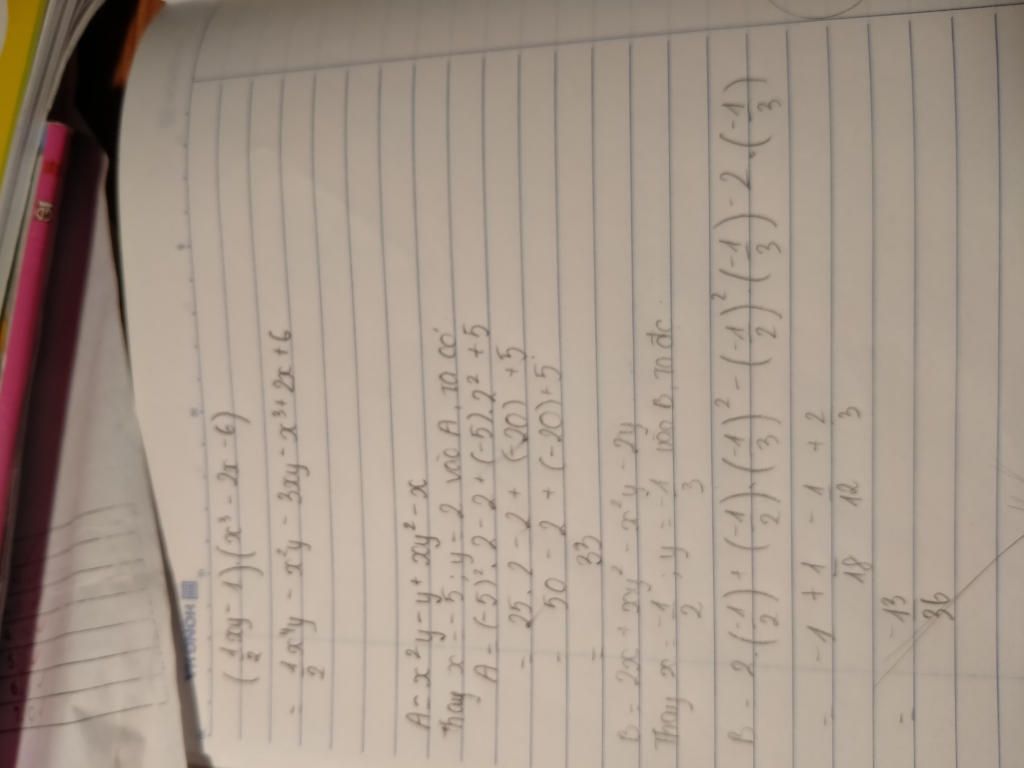 (1/2 xy - 1).(x³ - 2x - 6)
= 1/2 x⁴y - x²y - 3xy - x³ + 2x + 6
A = x²y - y + xy² - x
Thay x = -5; y = 2 vào A, ta có:
A = (-5)².2 - 2 + (-5).2² + 5
= 25.2 - 2 + (-20) + 5
= 50 - 2 + (-20) + 5
= 33
B = 2x + xy² - x²y - 2y
Thay x = -1/2; y = -1/3 vào B, ta đc
B = 2.(-1/2) + (-1/2).(-1/3)² - (-1/2)²(-1/3) - 2.(-1/3)
= -1 + 1/18 - 1/12 + 2/3
= -13/36